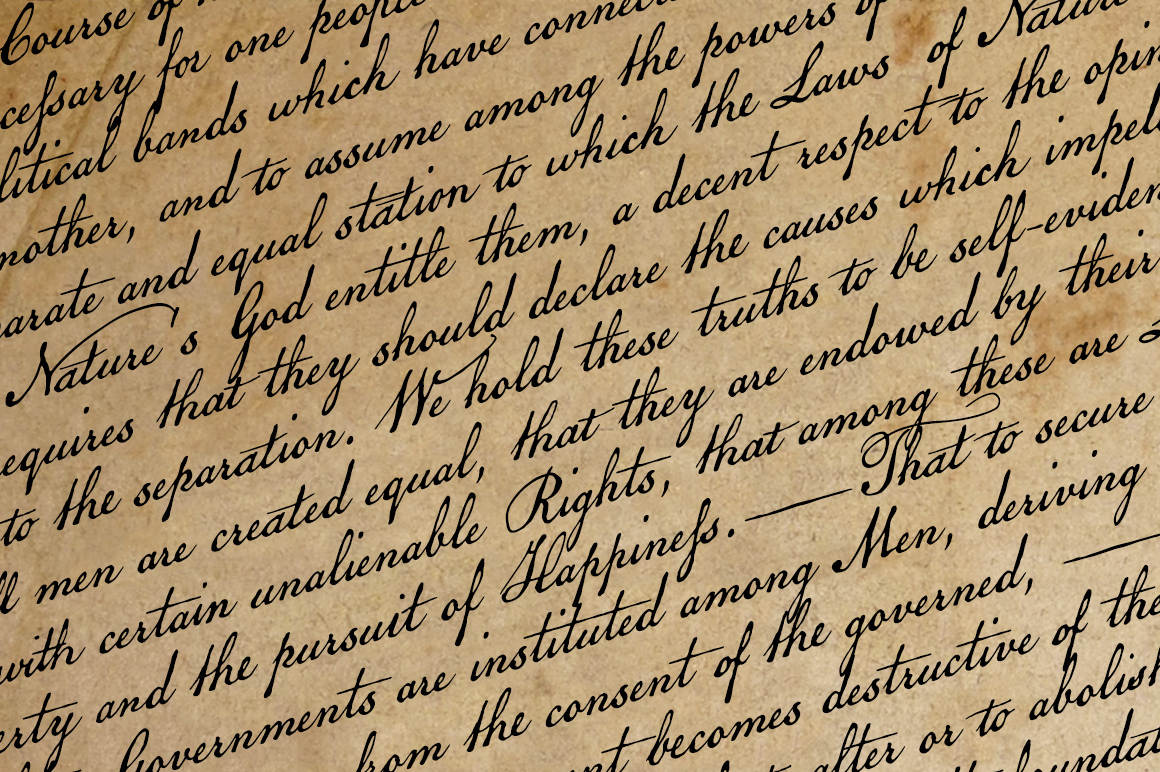 Course of
ceſsary for one people
litical bands which have connec
nother, and to assume among the powers of
parate and equal station to which the Laws of Nature
Nature's God entitle them, a decent respect to the opin
equires that they should declare the causes which impel
to the separation. We hold these truths to be self-eviden
ll men are created equal, that they are endowed by their
with certain unalienable Rights, that among these are L
erty and the pursuit of Happineſs. — That to secure
Governments are instituted among Men, deriving
from the consent of the governed, —
nt becomes destructive of the
alter or to abolish
foundat